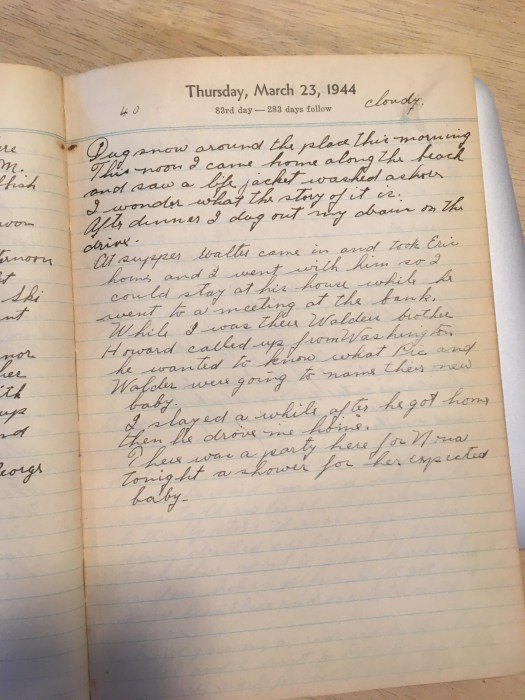 Thursday, March 23, 1944
83rd day — 283 days follow
40
cloudy.
Dug snow around the place this morning
This noon I came home along the beach
and saw a life jacket washed ashore
I wonder what the story of it is.
After dinner I dug out my drain on the
drive.
At supper Walter came in and took Eric
home and I went with him so I
could stay at his house while he
went to a meeting at the bank.
While I was there Walders brother
Howard called up from Washington
he wanted to know what and
Walder were going to name their new
baby.
I stayed a while after he got home
then he drove me home.
There was a party here for Nona
tonight a shower for her expected
baby.
M.
fish
noon
ternoon
Ski
nt
nor
her
ith
ups
nd
George